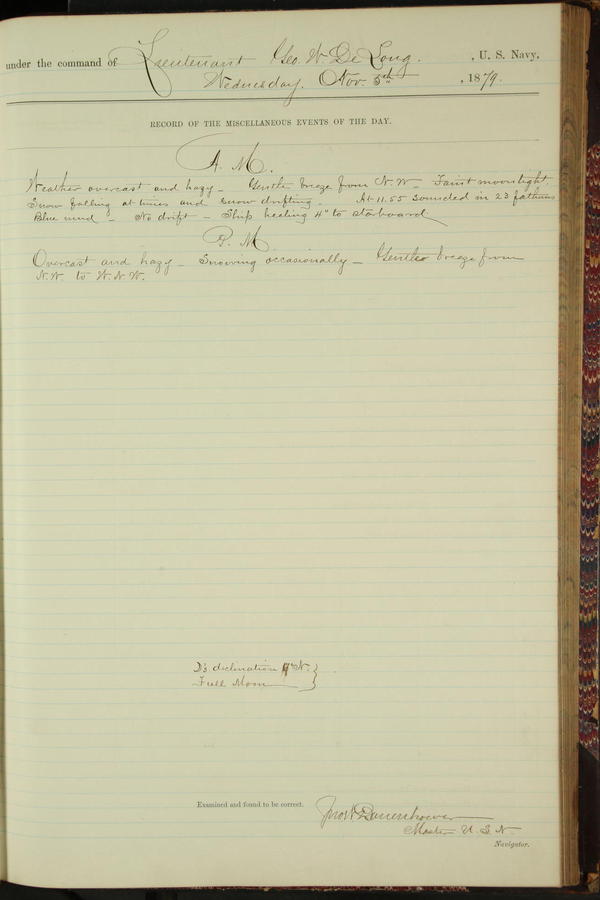 under the command of Lieutenant Geo. W. De Long. , U. S. Navy,
Wednesday, Nov. 5th , 1879.
RECORD OF THE MISCELLANEOUS EVENTS OF THE DAY.
A. M.
Weather overcast and hazy — Gentle breeze from N. W. — Faint moonlight.
Snow falling at times and snow drifting — At 11.55 sounded in 23 fathoms
Blue mud — No drift — Ship heeling 4° to starboard
P. M.
Overcast and hazy — Snowing occasionally — Gentle breeze from
N.W. to W.N.W.
D's declination N. }
Full Moon }
Examined and found to be correct.
Jno W Danenhower
Master U. S. N.
Navigator.